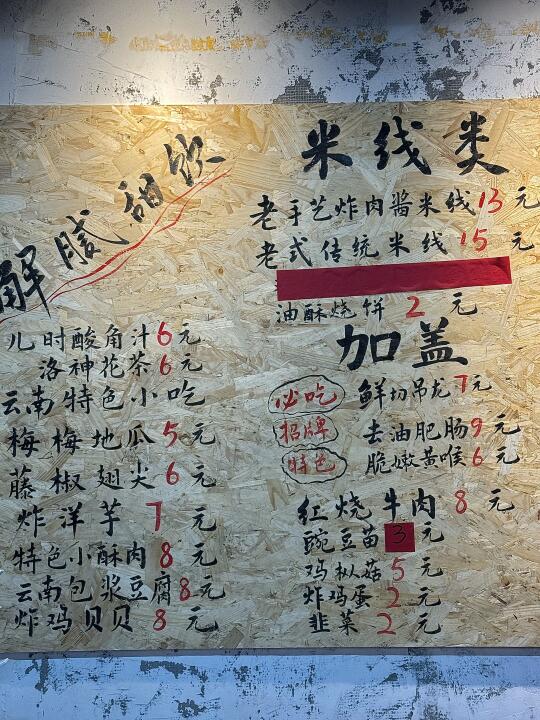 解腻甜饮
儿时酸角汁6元
洛神花茶6元
云南特色小吃
梅梅地瓜5元
藤椒翅尖6元
炸洋芋7元
特色小酥肉8元
云南包浆豆腐8元
炸鸡贝贝8元
米线类
老手艺炸肉酱米线13元
老式传统米线15元
油酥烧饼2元
加盖
必吃 鲜切吊龙7元
招牌 去油肥肠9元
特色 脆嫩黄喉6元
红烧牛肉8元
豌豆苗3元
鸡枞菇5元
炸鸡蛋2元
韭菜2元